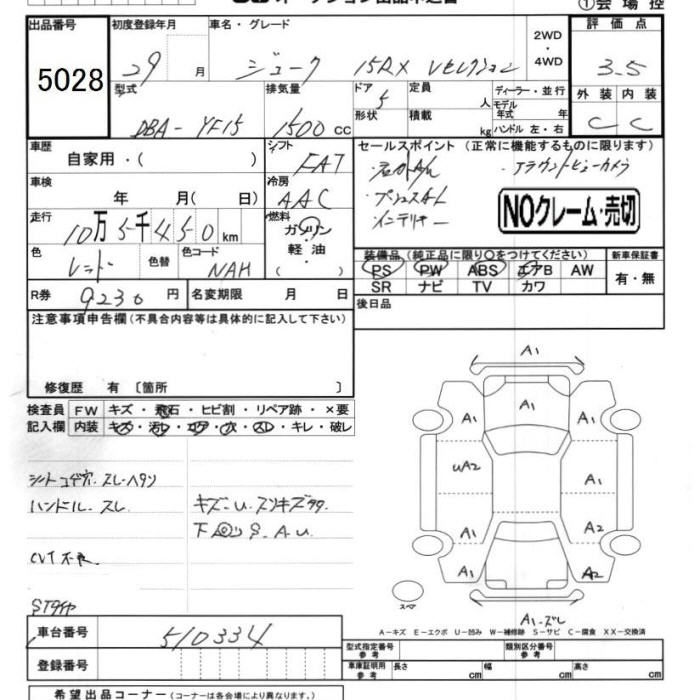 ①会場控
出品番号 初度登録年月 車名・グレード 2WD・4WD 評価点
5028 29月 ジューク 15RX Vセレクション 3.5
型式 排気量 ドア 定員 人 ディーラー・並行 モデル年式 年 外装 内装
DBA-YF15 1500cc 5 形状 積載 kg ハンドル 左・右 C C
車歴 自家用・( ) シフト FAT セールスポイント (正常に機能するものに限ります)
アラウンドビューカメラ
車検 年 月( 日) 冷房 AAC プッシュスタート
インテリキー
NOクレーム・売切
走行 10万5千450km 燃料 ガソリン 軽油 ( )
色 レッド 色替 色コード NAH
装備品 (純正品に限り○をつけてください) 新車保証書
PS PW ABS エアB AW 有・無
SR ナビ TV カワ
R券 9230円 名変期限 月 日 後日品
注意事項申告欄(不具合内容等は具体的に記入して下さい)
修復歴 有 〔箇所 〕
検査員記入欄 FW キズ・飛石・ヒビ割・リペア跡・×要
内装 キズ・汚レ・コゲ・穴・スレ・キレ・破レ
シートコゲ穴.スレ・ヘタリ
ハンドル.スレ
キズ.U.スリキズ多々
下回りS.A.U
CVT不良.
STタイヤ
A1
A1 A1 A1
uA2 A1
A1 A2
A1 A2
スペア
A1-ズレ
A-キズ E-エクボ U-凹み W-補修跡 S-サビ C-腐食 XX-交換済
車台番号 510334
登録番号
型式指定番号 参考 類別区分番号 参考
車庫証明用 参考 長さ cm 幅 cm 高さ cm
希望出品コーナー (コーナーは各会場により異なります。)